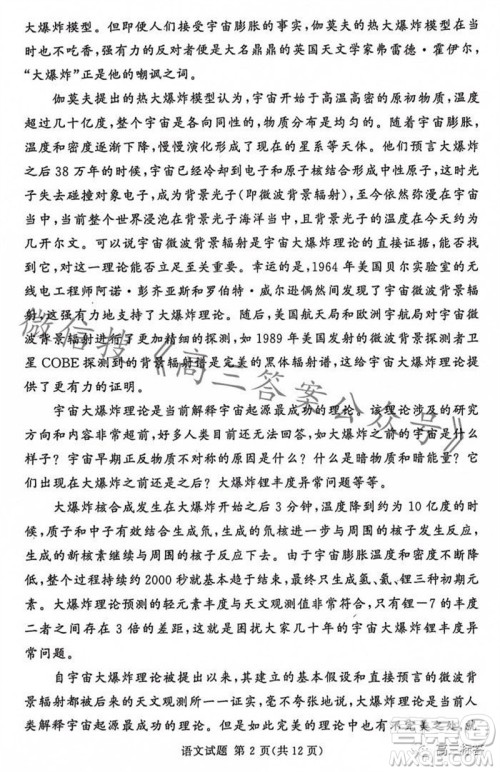 大爆炸模型。但即便人们接受宇宙膨胀的事实，伽莫夫的热大爆炸模型在当
时也不吃香，强有力的反对者便是大名鼎鼎的英国天文学家弗雷德·霍伊尔，
“大爆炸”正是他的嘲讽之词。
伽莫夫提出的热大爆炸模型认为，宇宙开始于高温高密的原初物质，温度
超过几十亿度，整个宇宙是各向同性的，物质分布是均匀的。随着宇宙膨胀，
温度和密度逐渐下降，慢慢演化形成了现在的星系等天体。他们提出在大爆炸
之后 38 万年的时候，宇宙已经冷却到电子和原子核结合形成中性原子，这时光
子失去碰撞对象电子，成为背景光子(即微波背景辐射)，至今依然弥漫在宇宙
当中，当前整个世界都沉浸在背景光子海洋当中，且背景光子的温度在今天约为
几开尔文。可以说宇宙微波背景辐射是宇宙大爆炸理论的直接证据，能否观测
到它，关系到这一理论能否立足至关重要。幸运的是，1964 年美国贝尔实验室的无
线电工程师阿诺·彭齐亚斯和罗伯特·威尔逊偶然间发现了宇宙微波背景辐
射，这强有力地支持了大爆炸理论。随后，美国航天局和欧洲宇航局对宇宙微
波背景辐射进行了更加精细的探测，如 1989 年美国发射的微波背景探测者卫
星 COBE 探测到的背景辐射谱是完美的黑体辐射谱，这给宇宙大爆炸理论提
供了更有力的证明。
宇宙大爆炸理论是当前解释宇宙起源最成功的理论，该理论涉及的研究
方向和内容非常丰富，好多人类目前还无法回答，如大爆炸之前的宇宙是什么
样子？宇宙早期正反物质不对称的原因是什么？什么是暗物质和暗能量？它
们出现在大爆炸之前还是之后？大爆炸锂丰度异常问题等等。
大爆炸核合成发生在大爆炸之后 3 分钟，温度降到大约为 10 亿度的时
候，质子和中子有效结合生成氘，生成的氘核进一步与周围的核子发生反应，
生成的新核素继续与周围的核子相互反应。由于宇宙膨胀温度和密度的下降，
整个过程持续约 2000 秒就基本趋于结束，最终形成氢、氦、锂三种初期元素。
大爆炸理论预测的轻元素丰度与天文观测值非常一致，只有锂－7 的丰度
二者之间存在 3 倍的差距，这就是困扰大家几十年的宇宙大爆炸锂丰度异
常问题。
自宇宙大爆炸理论被提出以来，其建立的基本假设和直接预言的微波背
景辐射都被后来的天文观测所一一证实，毫不夸张地说，大爆炸理论是当前人
类解释宇宙起源最成功的理论。但是如此完美的理论也有不完美之处，就
语文试题 第 2 页(共 12 页)
微信搜《高三答案公众号》
高三标答